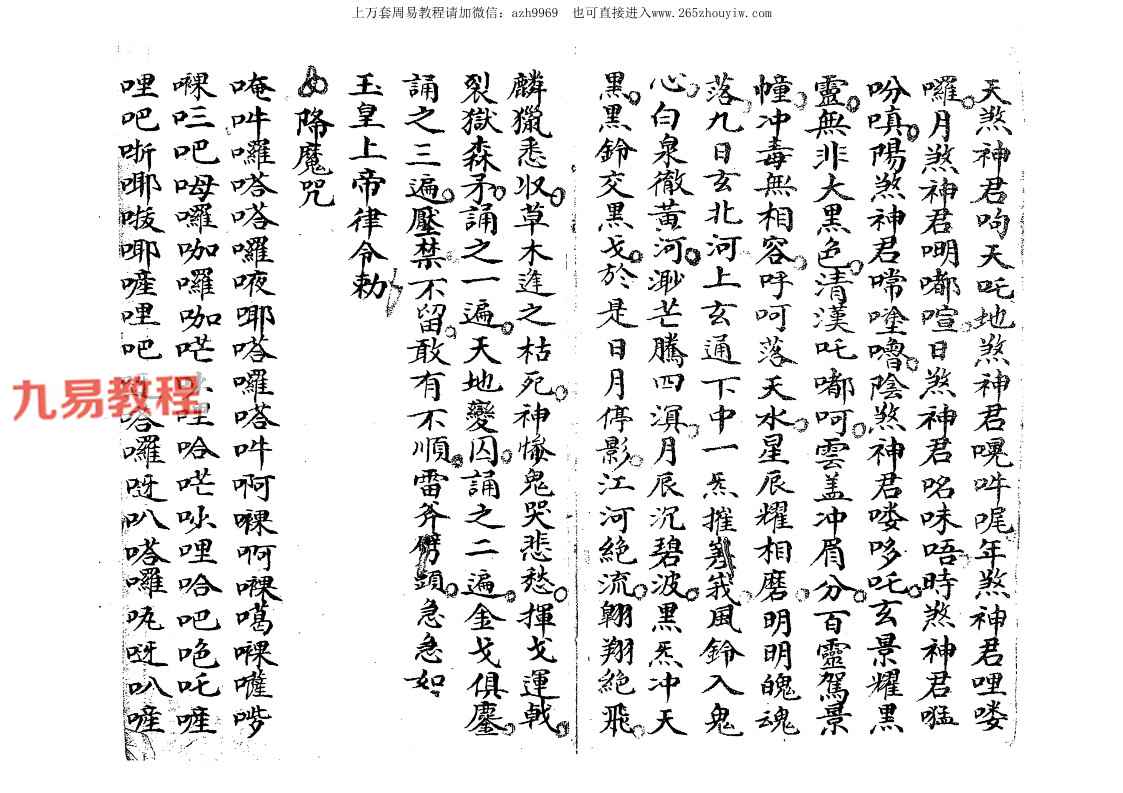 上万套周易教程请加微信：azh9969　也可直接进入www.265zhouyiw.com
天煞神君呴天吒地煞神君㖠吽呢年煞神君哩喽
囉月煞神君嘲嘟喧日煞神君咯味唔時煞神君㘐
吩嗔陽煞神君嘗塗嚕陰煞神君喽哆吒玄景耀黑
靈無非大黑色清漢吒嘟呵雲盖冲眉分百靈駕景
幢冲毒無相容呼呵落天水星辰耀相磨明明魄魂
落九日玄北河上玄通下中一炁摧我風鈴入鬼
心白泉徹黄河渺芒騰四溟月辰沉碧波黑炁冲天
黑黑鈴交黑戈於是日月停影江河絶流翱翔絶飛
麟獵悉収草木逢之枯死神慘鬼哭悲愁揮戈運戟
裂獄森矛誦之一遍天地變囚誦之二遍金戈俱鏖
誦之三遍壓禁不留敢有不順雷斧劈頭急急如
玉皇上帝律令勅
降魔咒
唵吽囉嗒嗒囉唊耶嗒囉嗒吽啊𠼤啊𠼤噶𠼤嚾嘇
𠼤吧囉咖囉咖哩哈吣哩哈吧吒喹
哩吧哳耶哱耶喹哩吧哈囉呀叭嗒囉呀叭喹
九易教程